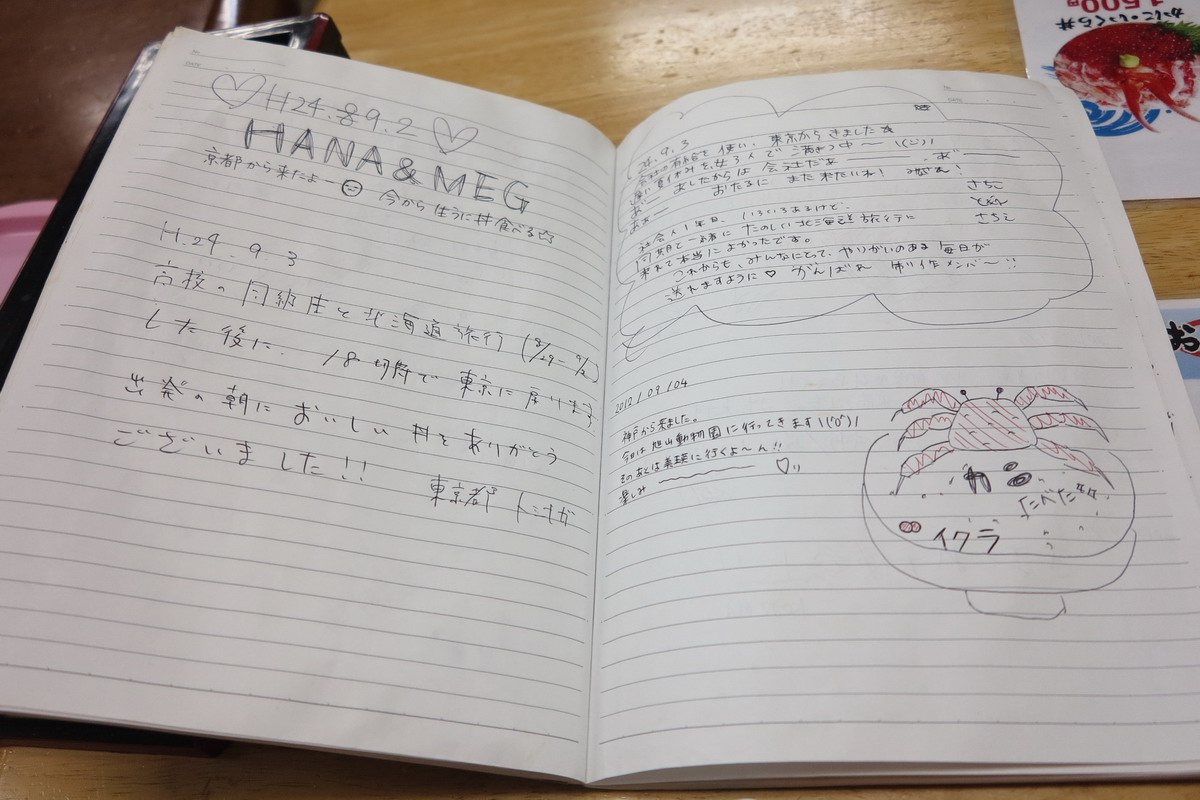 H24.9.2
HANA & MEG
京都から来たよー
今から生うに丼食べる☆
H.24.9.3
高校の同級生と北海道旅行(8/29-9/2)
した後に、18切符で東京に戻ります
出発の朝においしい丼をありがとう
ございました!!
東京都 トミナガ
24.9.3
使い、東京からきました☆
夏休みを女3人で満きつ中〜 \(^^)/
あー あしたからは会社だぁー
おたるに また来たいわ!
さちこ
社会人1年目、いろいろあるけど、
同期と一緒に たのしい北海道旅行に
さちえ
来れて本当によかったです。
これからも、みんなにとって、やりがいのある毎日が
送れますように♡ がんばれ 制作メンバ〜!!
2012/09/04
神戸から来ました。
今日は旭山動物園に行ってきます\(^o^)/
そのあとは美瑛に行くよ〜ん!!
楽しみ〜 ♡
カニ
たべた
イクラ
かに・いくら丼
1,500円
お